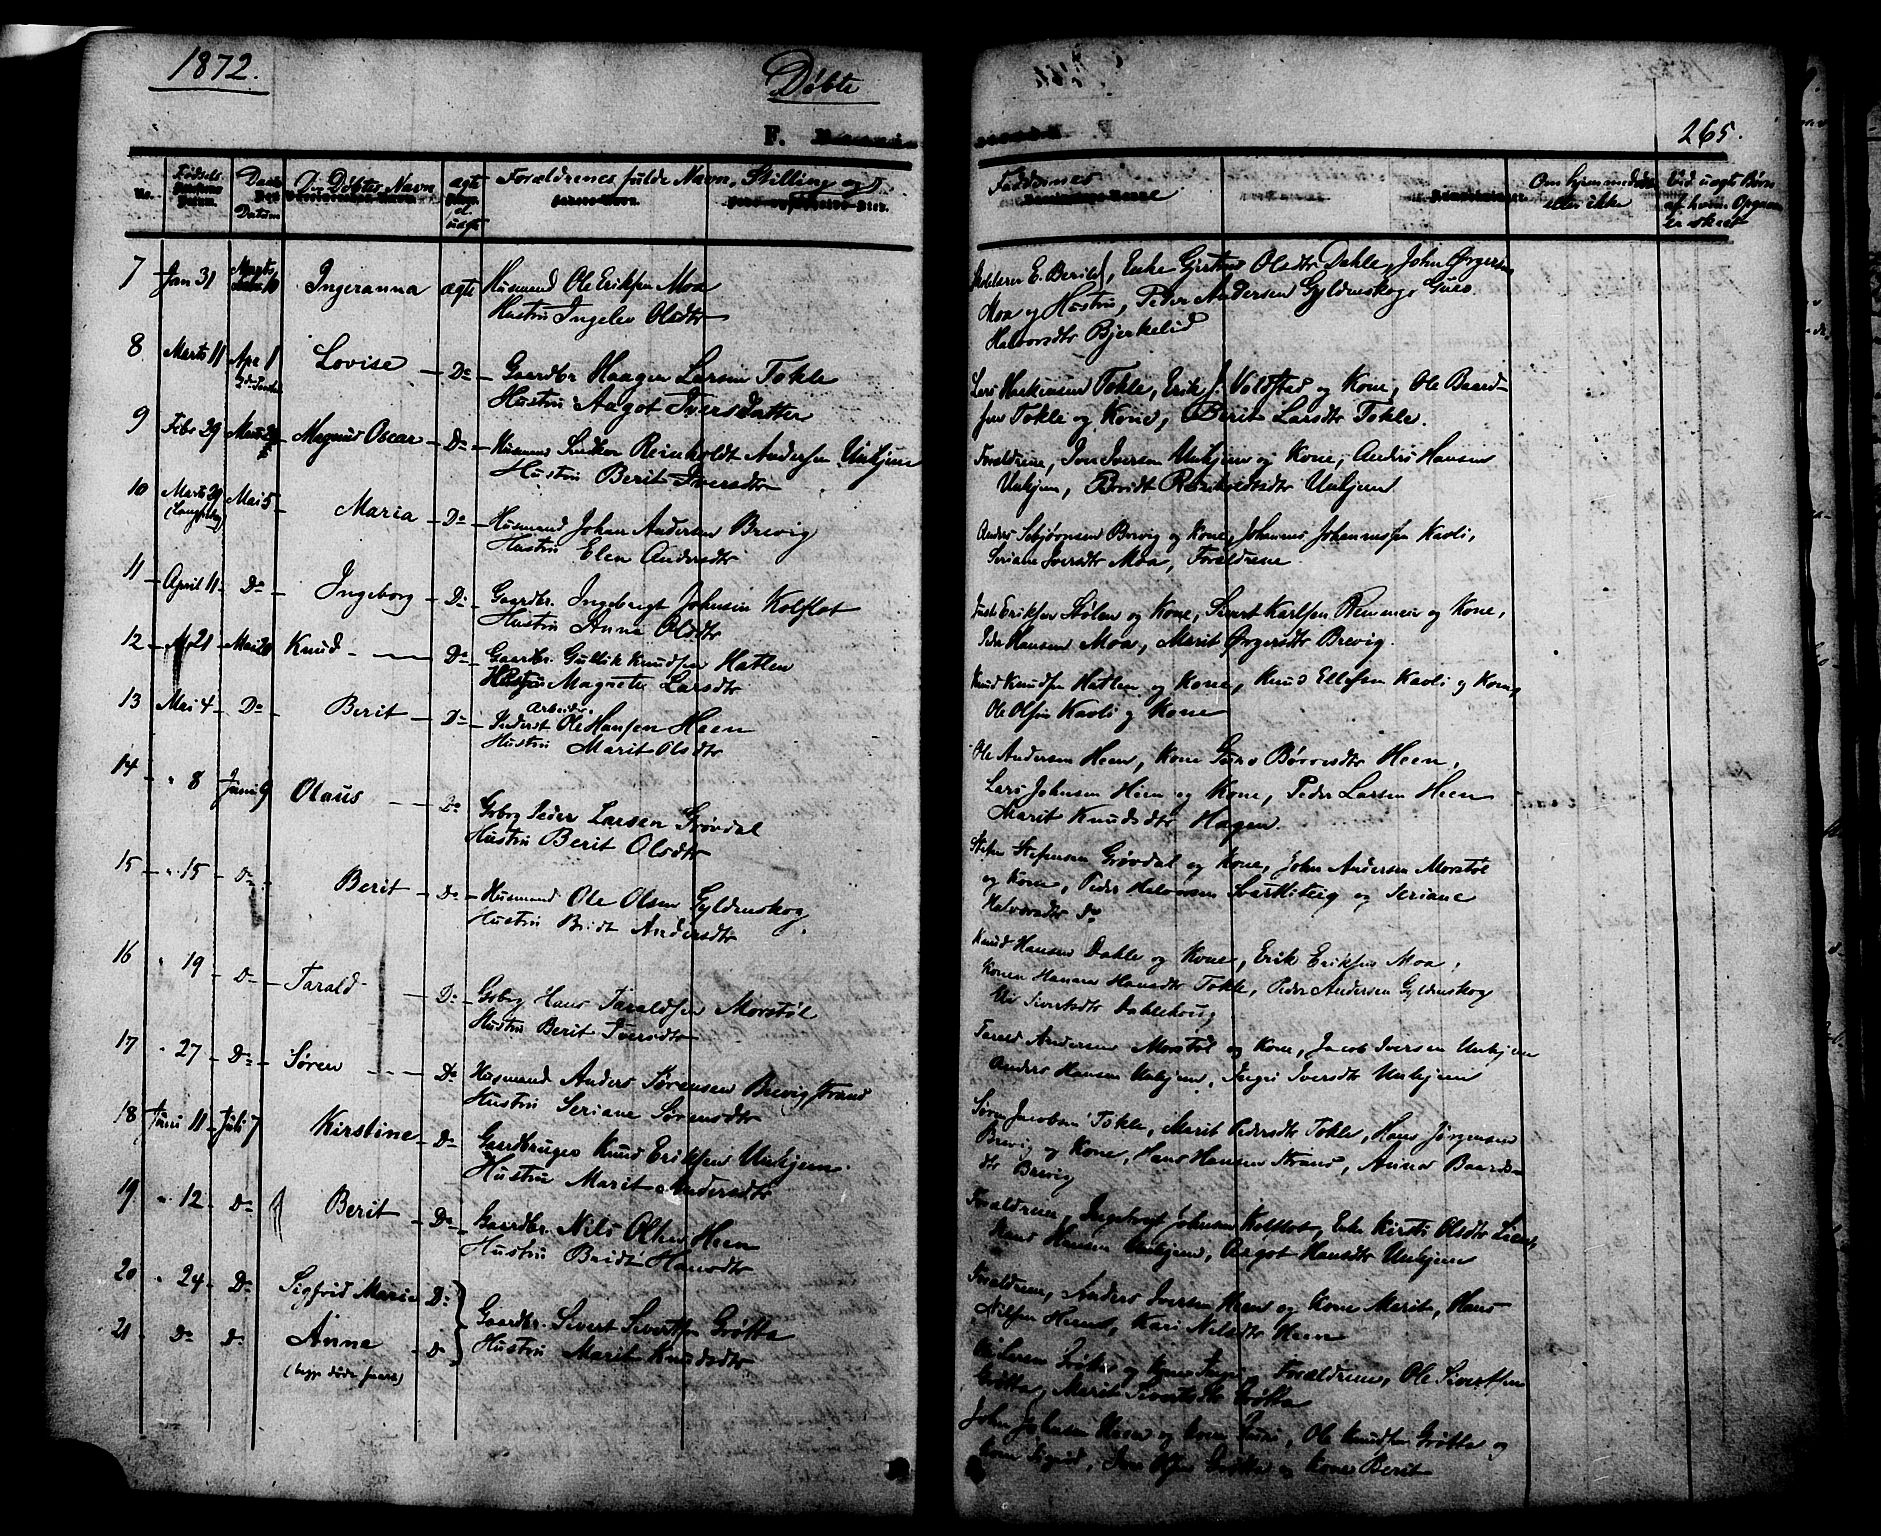 1872.
Døbte
F.
265.
No.
Fødsels Datum
Daabs Datum
De Døbtes Navn
ægte eller uægte
Forældrenes fulde Navn, Stilling og
Faddernes
Om hjemmedøbt eller ikke
Ved uægte Børn af hvem Opgaven er skeet
7 Jan 31 Marts 10 Ingeranna ægte Husmand Ole Eriksen Moa
Hustru Ingelev Olsdtr
E. Berild, Enke Gjertrud Olsdtr Dahle, John Ørgersen
Moa og Hustru, Peder Andersen Gyldenskog, Guro
Halvorsdtr Bjerkelid
8 Marts 11 Apr 1 Lovise Do Gaardbr Haagen Larsen Tokle
Hustru Aagot Iversdatter
Lars Haakensen Tokle, Erik J. Voldstad og Kone, Ole Baard-
sen Tokle og Kone, Berit Larsdtr Tokle.
9 Febr 29 Magnus Oscar Do Husmand Reinholdt Andersen Unhjem
Hustru Berit Iversdtr
Forældrene, Iver Iversen Unhjem og Kone, Anders Hansen
Unhjem, Brridt Reinholdtsdtr Unhjem
10 Marts 29 Mai 5 Maria Do Husmand Johan Andersen Brevig
Hustru Elen Andersdtr
Anders Brevig og Kone, Johannes Johannessen Kavli,
Seriane Iversdtr Moa, Forældrene
11 April 11 Do Ingeborg Do Gaardbr. Ingebrigt Johnsen Kolflot
Hustru Anne Olsdtr
Eriksen Stølen og Kone, Sivert Karlsen Remmem og Kone,
Peder Hansen Moa, Marit Ørgersdtr Brevig.
12 21 Mai 20 Knud Do Gaardbr. Gullik Knudsen Hatlen
Hustru Magrete Larsdtr
Knud Knudsen Hatlen og Kone, Knud Ellefsen Kavli og Kone,
Ole Olsen Kavli og Kone
13 Mai 4 Do Berit Do Arbeider
Ole Hansen Heen
Hustru Marit Olsdtr
Ole Andersen Heen, Kone Guro Heen,
Lars Johnsen Heen og Kone, Peder Larsen Heen
Marit Knudsdtr Hagen.
14 " 8 Juni 9 Olaus Do Gbrg Peder Larsen Grøvdal
Hustru Berit Olsdtr
Stefen Stefensen Grøvdal og Kone, John Andersen Morstøl
og Kone, Peder Halvorsen Svartliteig og Seriane
Halvorsdtr Do
15 " 15 Do Berit Do Husmand Ole Olsen Gyldenskog,
Hustru Bridt Andersdtr
Knud Hansen Dahle og Kone, Erik Eriksen Moa,
Hansdtr Tokle, Peder Andersen Gyldenskog
Sivertsdtr Dahlehoug
16 " 19 Do Tarald Do Gbrg Hans Taraldsen Morstøl
Hustru Berit Iversdtr
Tarald Andersen Morstøl og Kone, Jacob Iversen Unhjem
Anders Hansen Unhjem, Iversdtr Unhjem
17 " 27 Do Søren Do Husmand Anders Sørensen Brevigstrand
Hustru Seriane Sørensdtr
Søren Jacobsen Tokle, Marit Pedersdtr Tokle, Hans Jørgensen
Brevig og Kone, Hans Hansen Strand, Anne Baards-
dtr Brevig
18 Juni 11 Juli 7 Kirstine Do Gaardbruger Knud Eriksen Unhjem
Hustru Marit Andersdtr
Forældrene, Ingebrigt Johnsen Kolflot, Enke Kirsti Olsdtr
Hansen Unhjem, Aagot Hansdtr Unhjem
19 " 12 Do Berit Do Gaardbr. Nils Olsen Heen
Hustru Bridt Hansdtr
Forældrene, Anders Iversen Heen og Kone Marit, Hans
Nilsen Heen, Kari Nilsdtr Heen
20 " 24 Do Sigfrid Marie Do
Gaardbr. Sivert Sivertsen Grøtta
Hustru Marit Knudsdtr
21 Do Do Anne Do
og Kone Forældrene, Ole Sivertsen
Grøtta, Marit Sivertsdtr Grøtta
John Johnsen og Kone Ole Knudsen Grøtta og
Kone Sigrid, Olsen Grøtta og Kone Berit